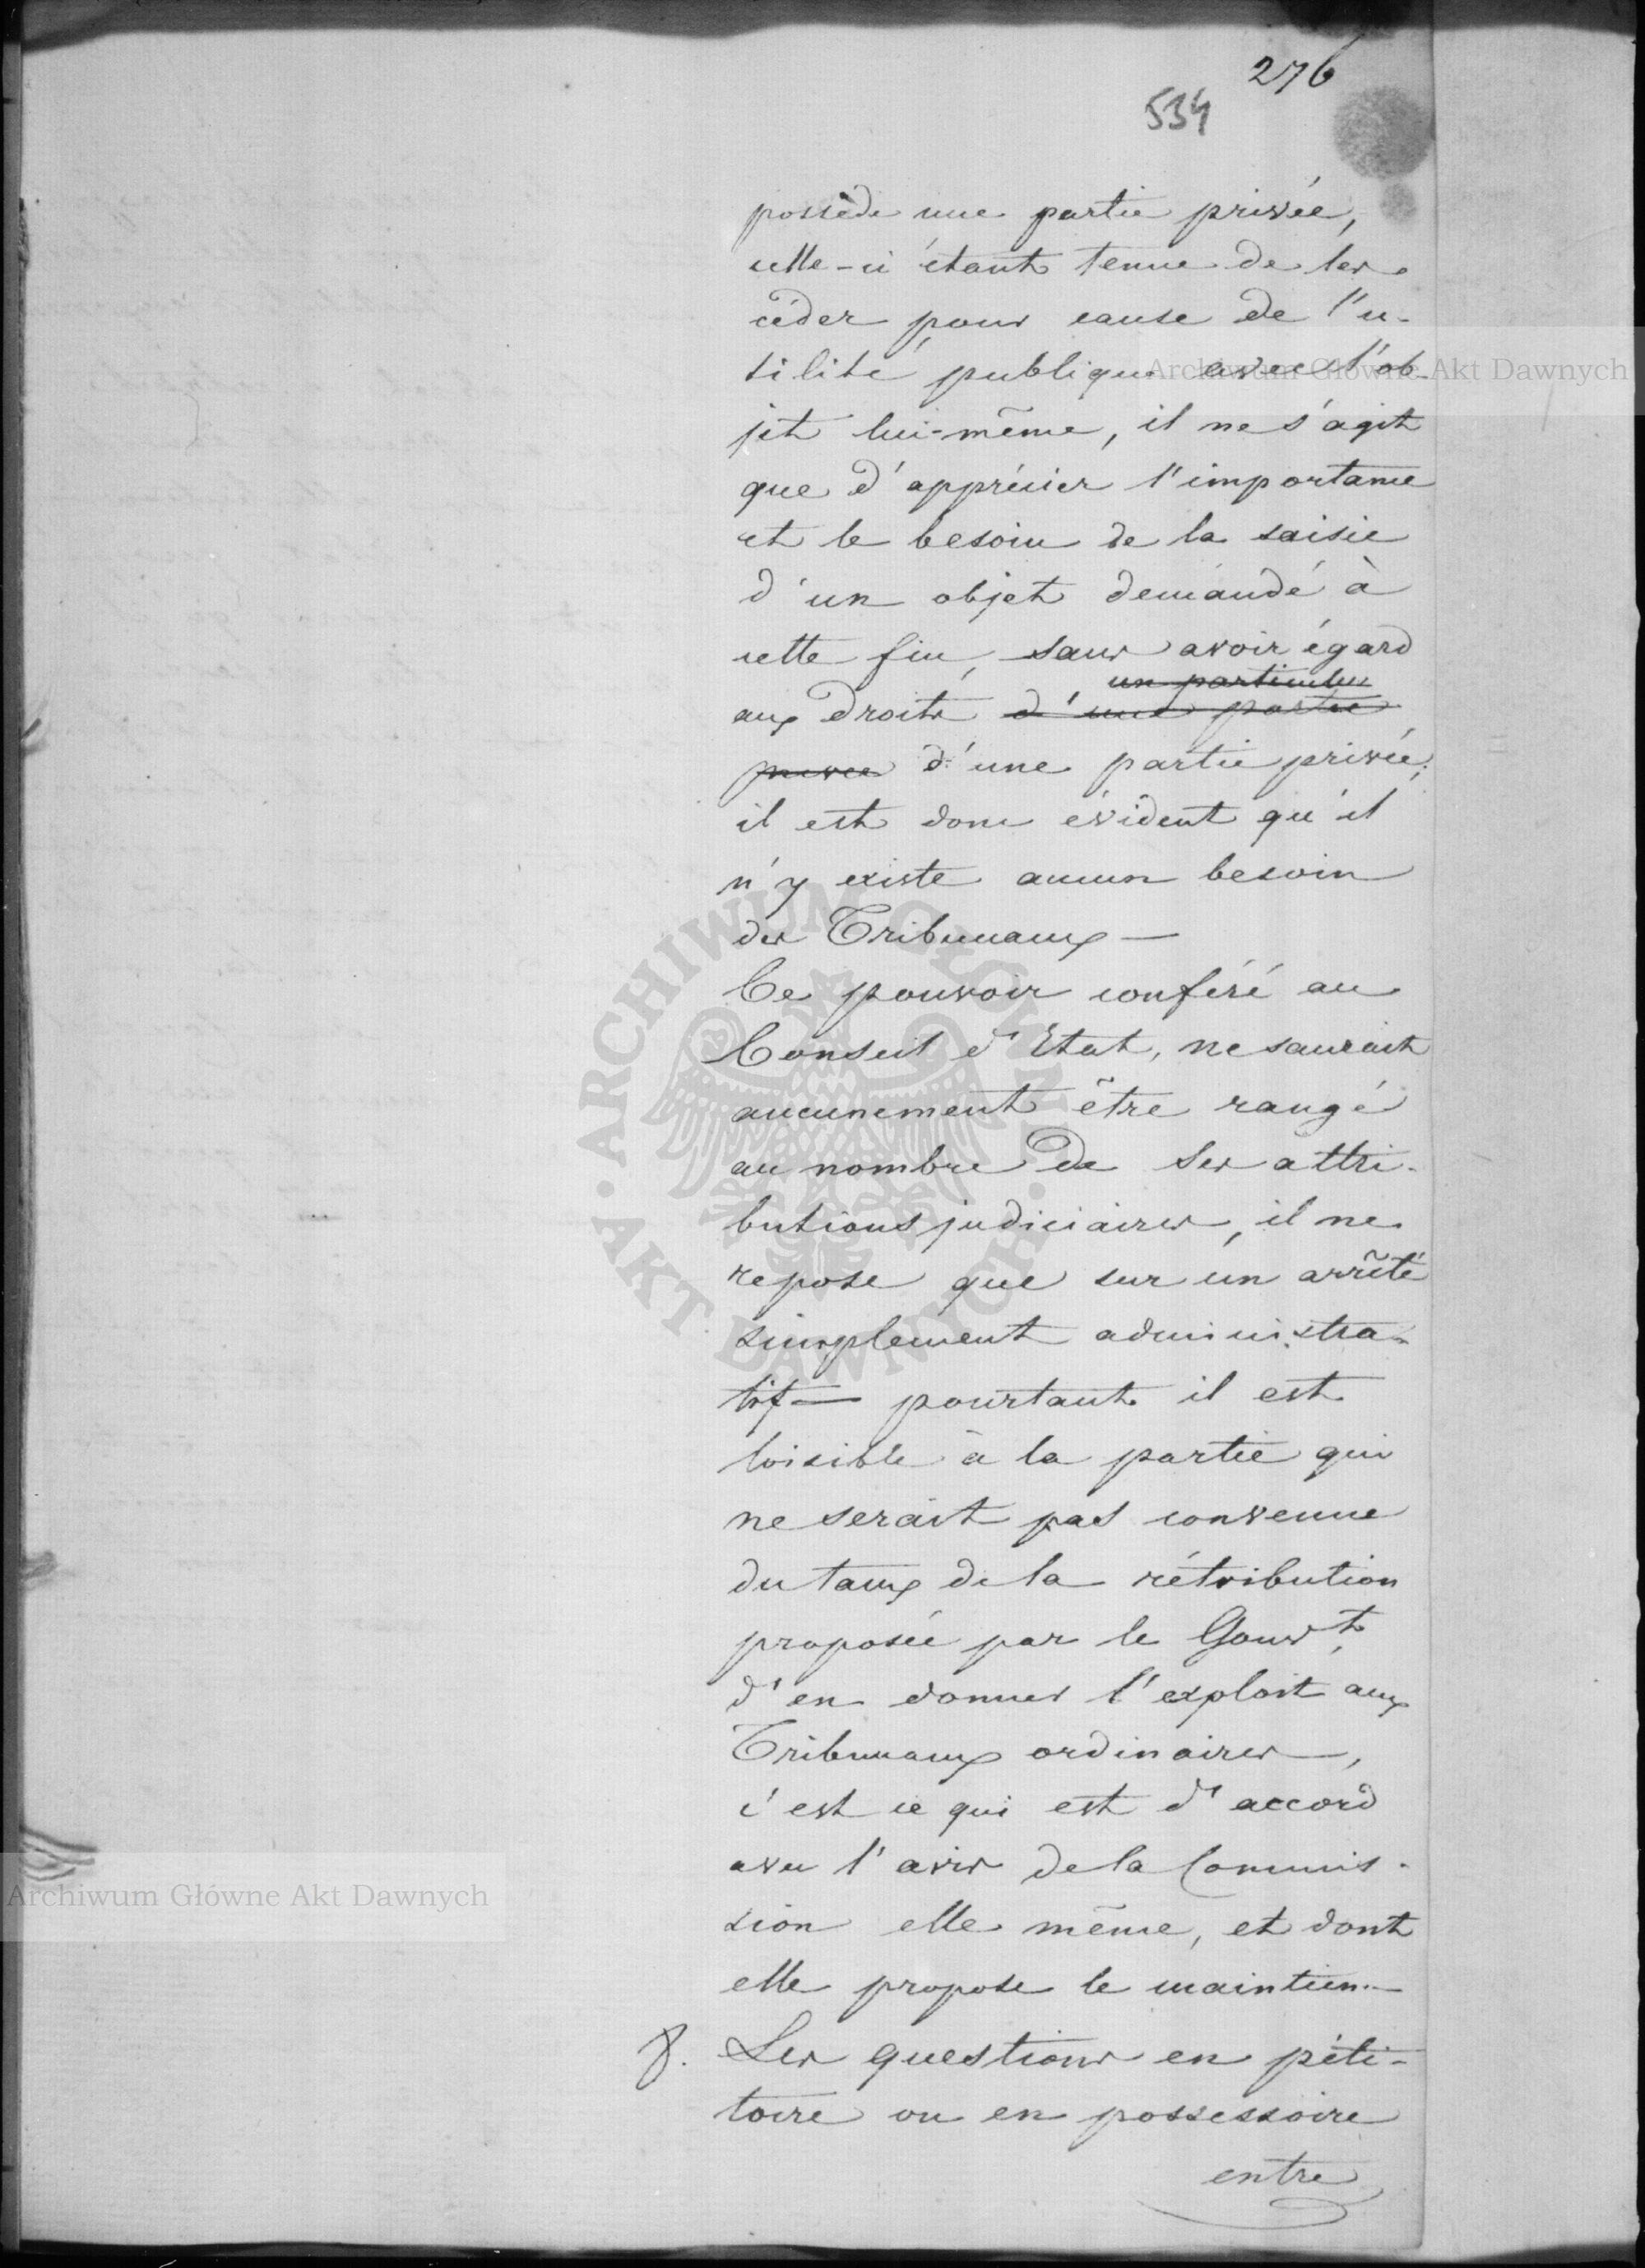 276
534
possède une partie privée,
celle-ci étant tenue de les
céder pour cause de l'u-
tilité publique avec l'ob-
jet lui-même, il ne s'agit
que d'apprécier l'importance
et le besoin de la saisie
d'un objet demandé à
cette fin, sans avoir égard
un particulier
aux droits d'une partie
privée d'une partie privée;
il est donc évident qu'il
n'y existe aucun besoin
des Tribunaux —
Ce pouvoir conféré au
Conseil d'Etat, ne saurait
aucunement être rangé
au nombre de ses attri-
butions judiciaires, il ne
repose que sur un arrêté
simplement administra-
tif — pourtant il est
loisible à la partie qui
ne serait pas convenue
du taux de la rétribution
proposée par le Gouvt,
d'en donner l'exploit aux
Tribunaux ordinaires —,
c'est ce qui est d'accord
avec l'avis de la Commis-
sion elle même, et dont
elle propose le maintien. —
8. Les questions en péti-
toire ou en possessoire
entre
Archiwum Główne Akt Dawnych
ARCHIWUM GŁÓWNE · AKT DAWNYCH ·
Archiwum Główne Akt Dawnych